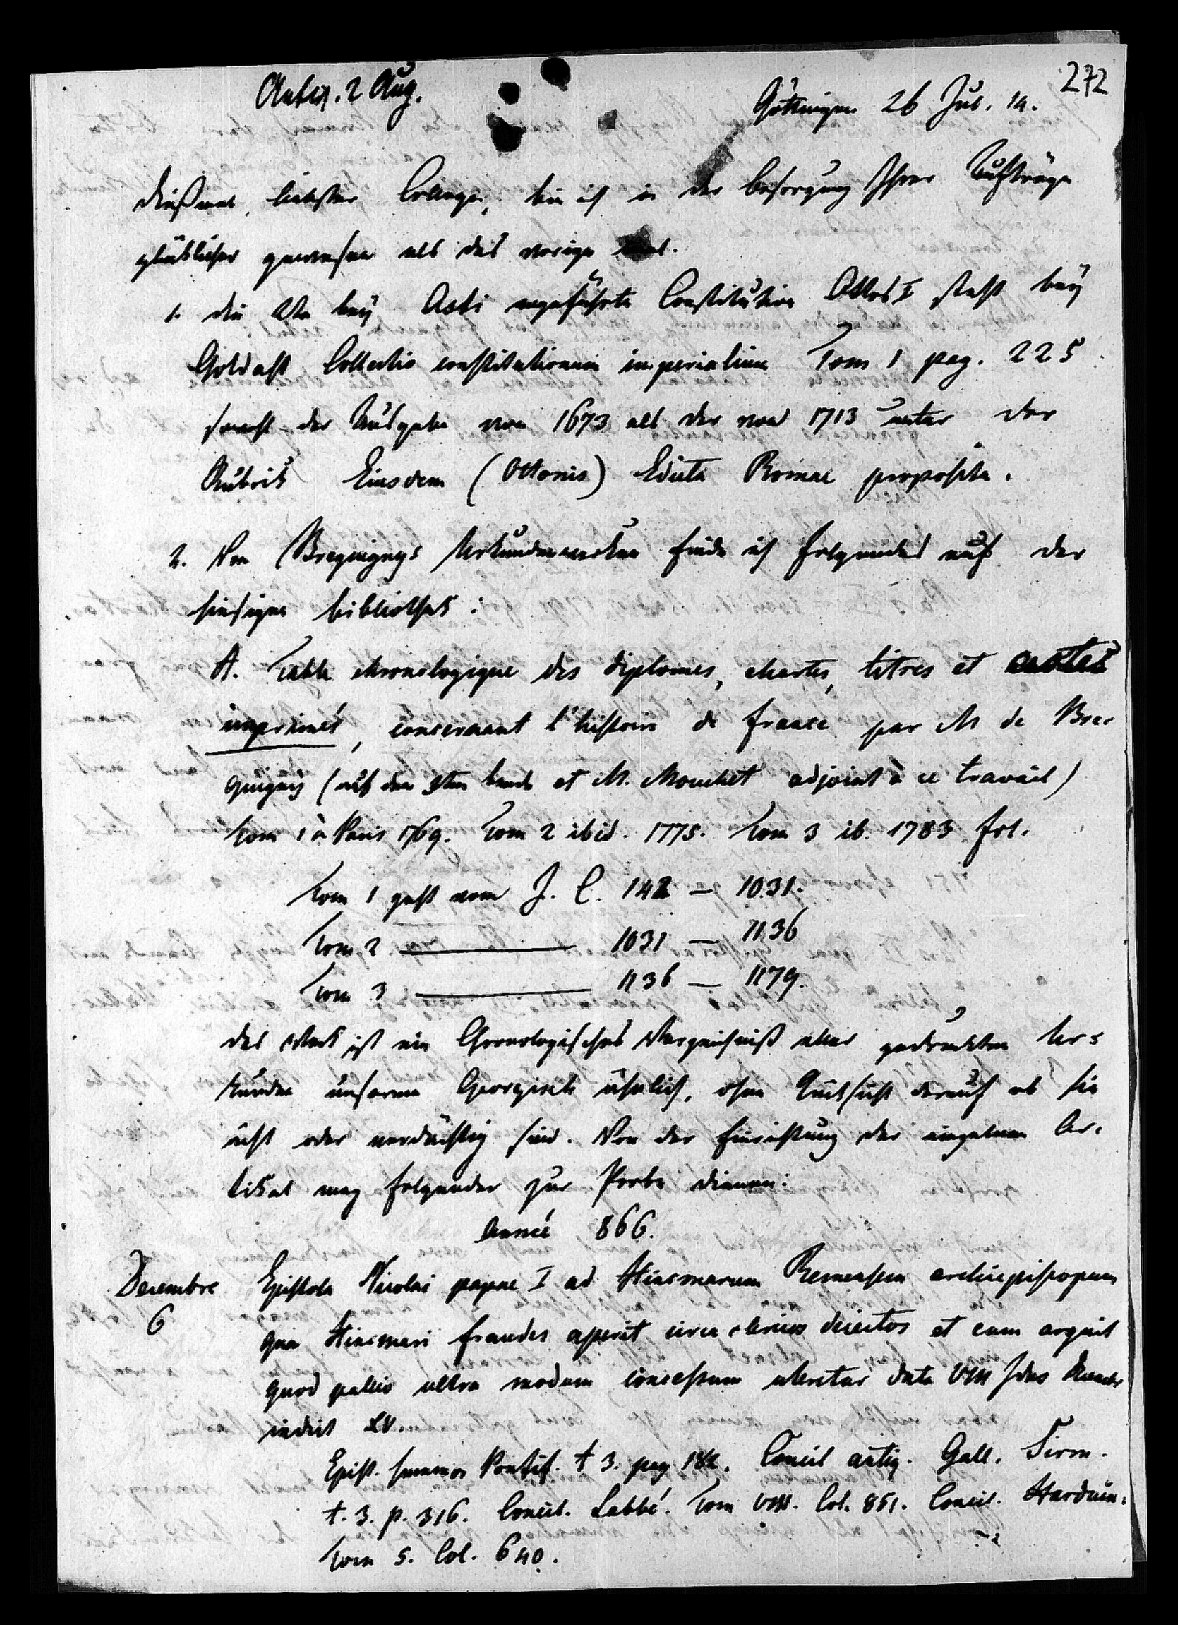 272
Antw. 2 Aug.
Göttingen 26 Jul. 14.
Dießmal, liebster College, bin ich in der Besorgung Ihrer Aufträge
glüklicher gewesen als das vorige mal.
1. die bey Asti angeführte Constitution Ottos I steht bey
Goldast Collectio constitutionum imperialium Tom 1 pag. 225
sowohl der Ausgabe von 1673 als der von 1713 unter der
Rubrik Eiusdem (Ottonis) Edicta Romae proposita.
2. Von Brequignys Urkundenwerken finde ich folgendes auf der
hiesigen bibliothek:
A. Table chronologique des diplomes, chartes, titres et actes
imprimés, concernant l'histoire de france par M de Bre-
quigny (auf dem 3ten bande et M. Mouchet adjoint à ce travail)
tom 1 à Paris 1769. Tom 2 ibid. 1775. Tom 3 ib. 1783 fol.
Tom 1 geht vom J. C. 142 — 1031.
Tom 2 — 1031 — 1136
Tom 3 — 1136 — 1179.
das Werk ist ein Chronologisches Verzeichniß aller gedruckten Ur-
kunden unserem Georgisch ähnlich, ohne Rücksicht darauf ob sie
ächt oder verdächtig sind. Von der Einrichtung der einzelnen Ar-
tikel mag folgender zur Probe dienen:
Année 866.
Decembre Epistola Nicolai papae I ad Hincmarum Remensem archiepiscopum
6 qua Hincmari fraudes aperit circa clericos deiectos et eum arguit
quod pallio ultra modum concessum uteretur data VIII Idus Decembr
indict XV.
Epist. summor Pontif. t 3. pag 182. Concil antiq. Gall. Sirm.
t. 3. p. 316. Concil. Labbé. Tom VIII. Col. 851. Concil. Harduin.
tom 5. Col. 640.